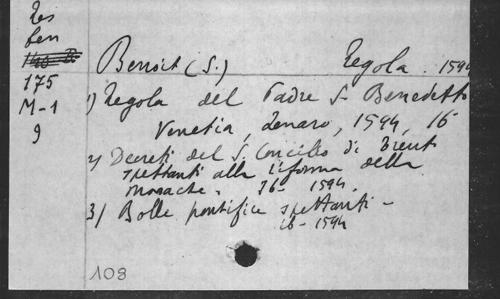 Res
ben
175
M-1
9
Benoit (S.) Regola . 1594
1) Regola del Padre S. Benedetto
Venetia, Zenaro, 1594, 16-
2) Decreti del S. Concilio di Trent
spettanti alla riforma delle
monache. 16- 1594.
3) Bolle pontificie spettanti -
16- 1594
108